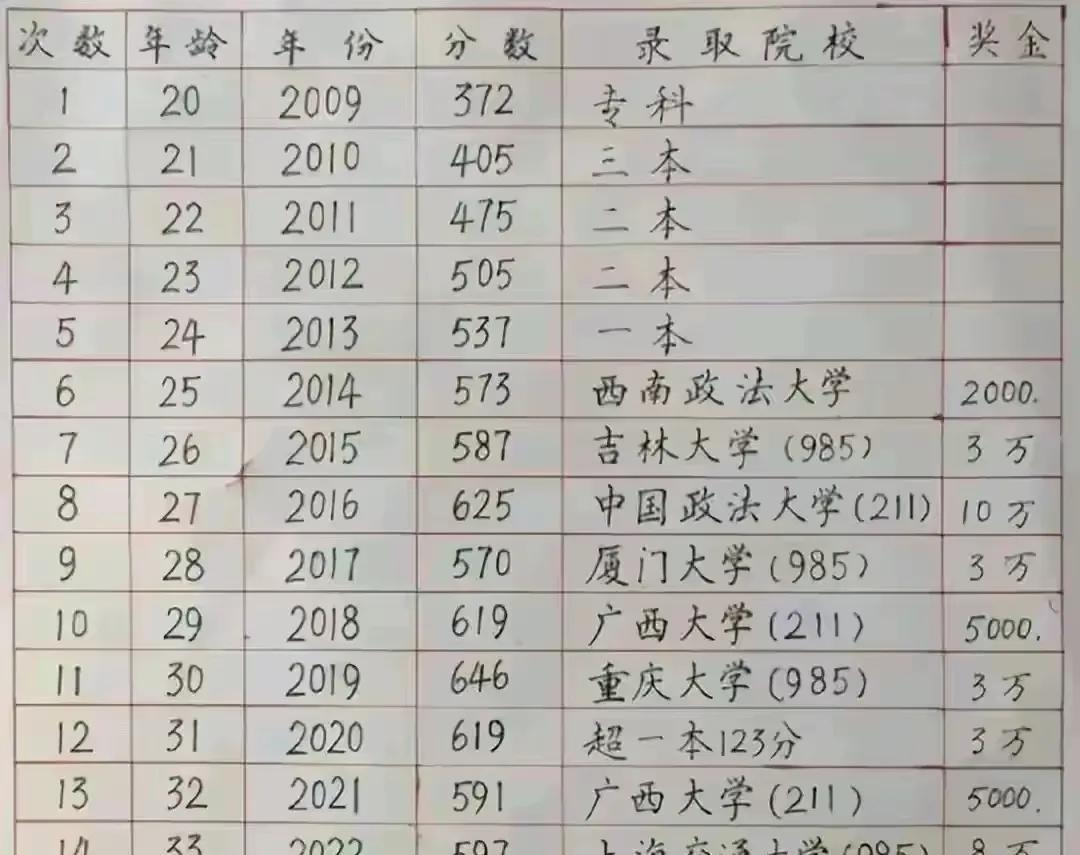 次数 年龄 年份 分数 录取院校 奖金
1 20 2009 372 专科
2 21 2010 405 三本
3 22 2011 475 二本
4 23 2012 505 二本
5 24 2013 537 一本
6 25 2014 573 西南政法大学 2000.
7 26 2015 587 吉林大学(985) 3万
8 27 2016 625 中国政法大学(211) 10万
9 28 2017 570 厦门大学(985) 3万
10 29 2018 619 广西大学(211) 5000.
11 30 2019 646 重庆大学(985) 3万
12 31 2020 619 超一本123分 3万
13 32 2021 591 广西大学(211) 5000.
14 33 2022 597 上海交通大学(985) 8万